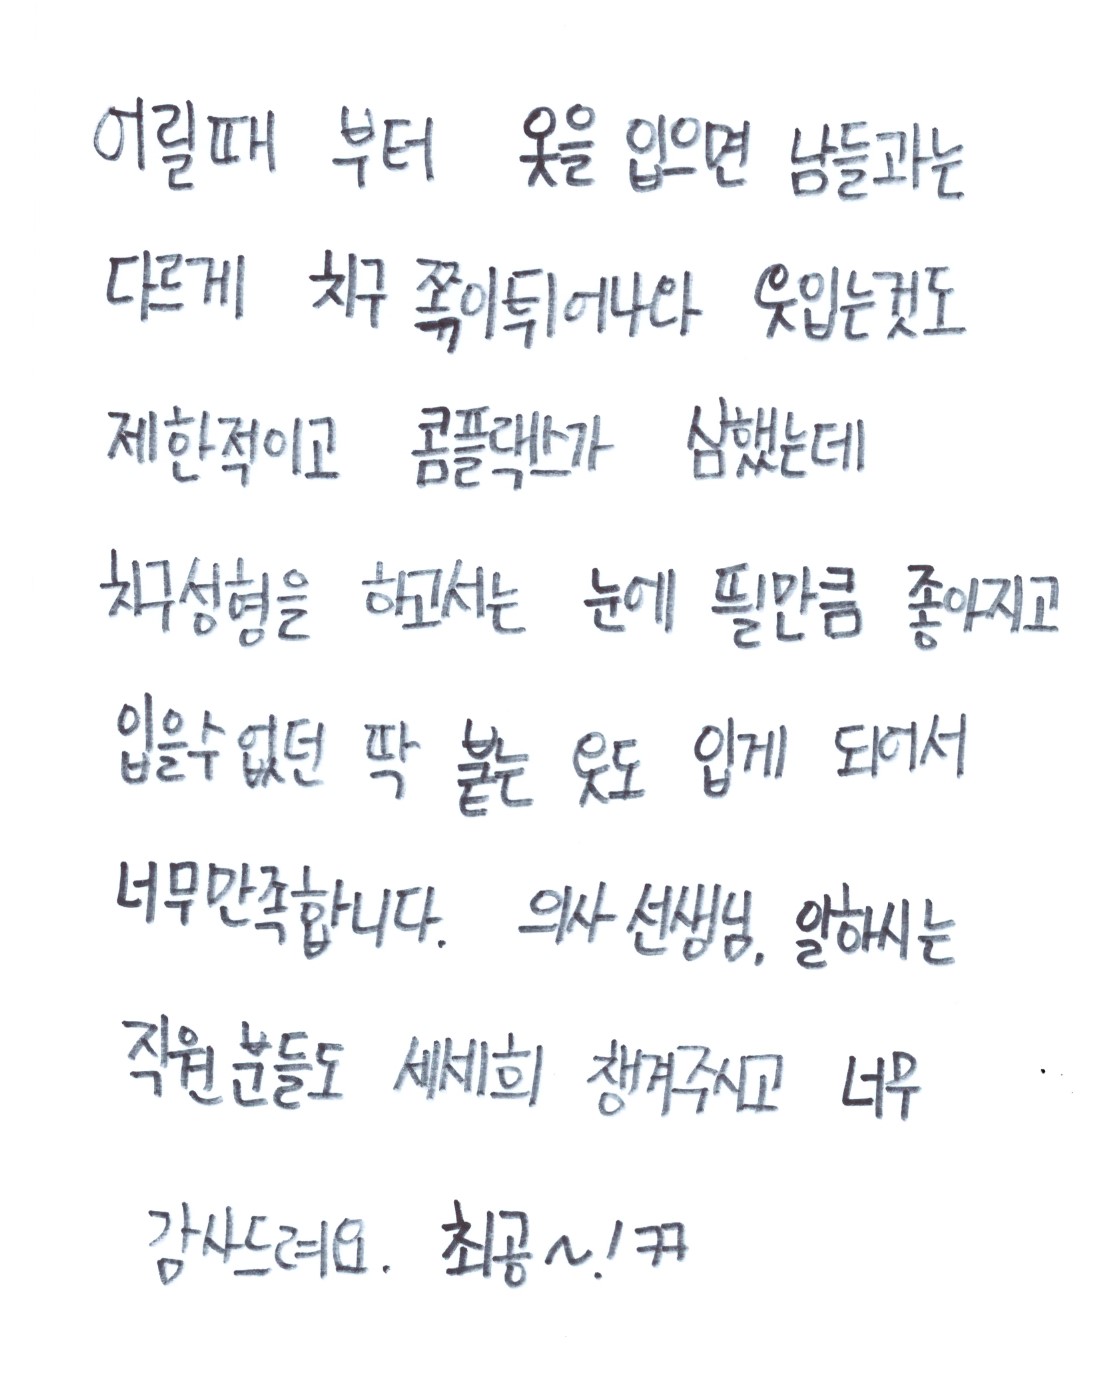 어릴때 부터 옷을 입으면 남들과는
다르게 치구 쪽이튀어나와 옷입는것도
제한적이고 콤플랙스가 심했는데
치구성형을 하고서는 눈에 띌만큼 좋아지고
입을수없던 딱 붙는 옷도 입게 되어서
너무만족합니다. 의사 선생님, 일하시는
직원분들도 세세희 챙겨주시고 너무
감사드려요. 최공~! ㅋㅋ